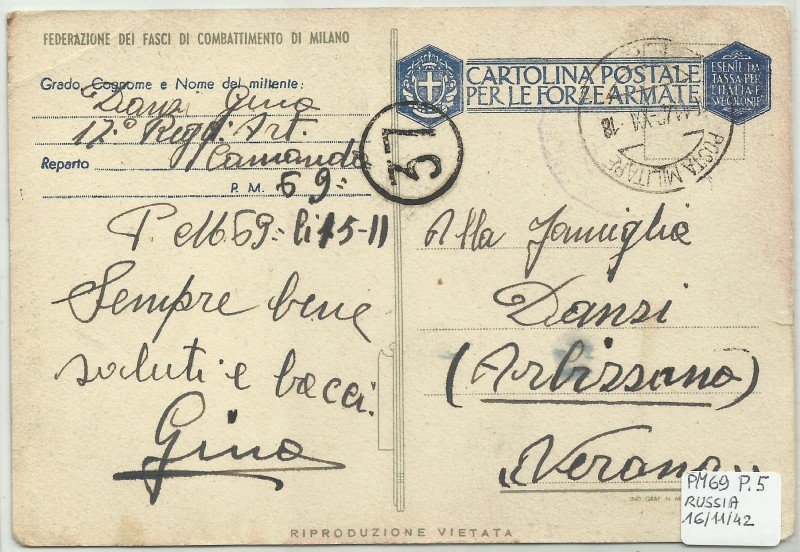 FEDERAZIONE DEI FASCI DI COMBATTIMENTO DI MILANO
CARTOLINA POSTALE
PER LE FORZE ARMATE
ESENTE DA
TASSA PER
L'ITALIA E
SUE COLONIE
POSTA MILITARE
18
Grado, Cognome e Nome del mittente:
Danzi Gino
17° Regg. Art.
Reparto Comando
P. M. 69
37
P.M. 69 li 15-11
Sempre bene
saluti e bacci.
Gino
Alla famiglia
Danzi
(Arbizzano)
Verona
RIPRODUZIONE VIETATA
PM69 P.5
RUSSIA
16/11/42